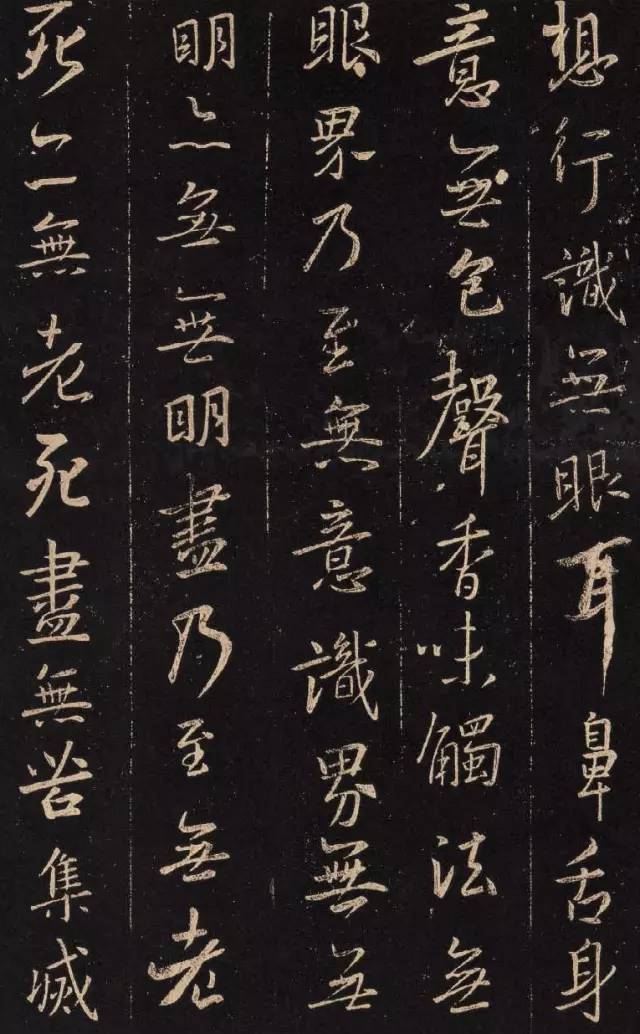 想行識無眼耳鼻舌身
意無色聲香味觸法無
眼界乃至無意識界無無
明亦無無明盡乃至無老
死亦無老死盡無苦集滅